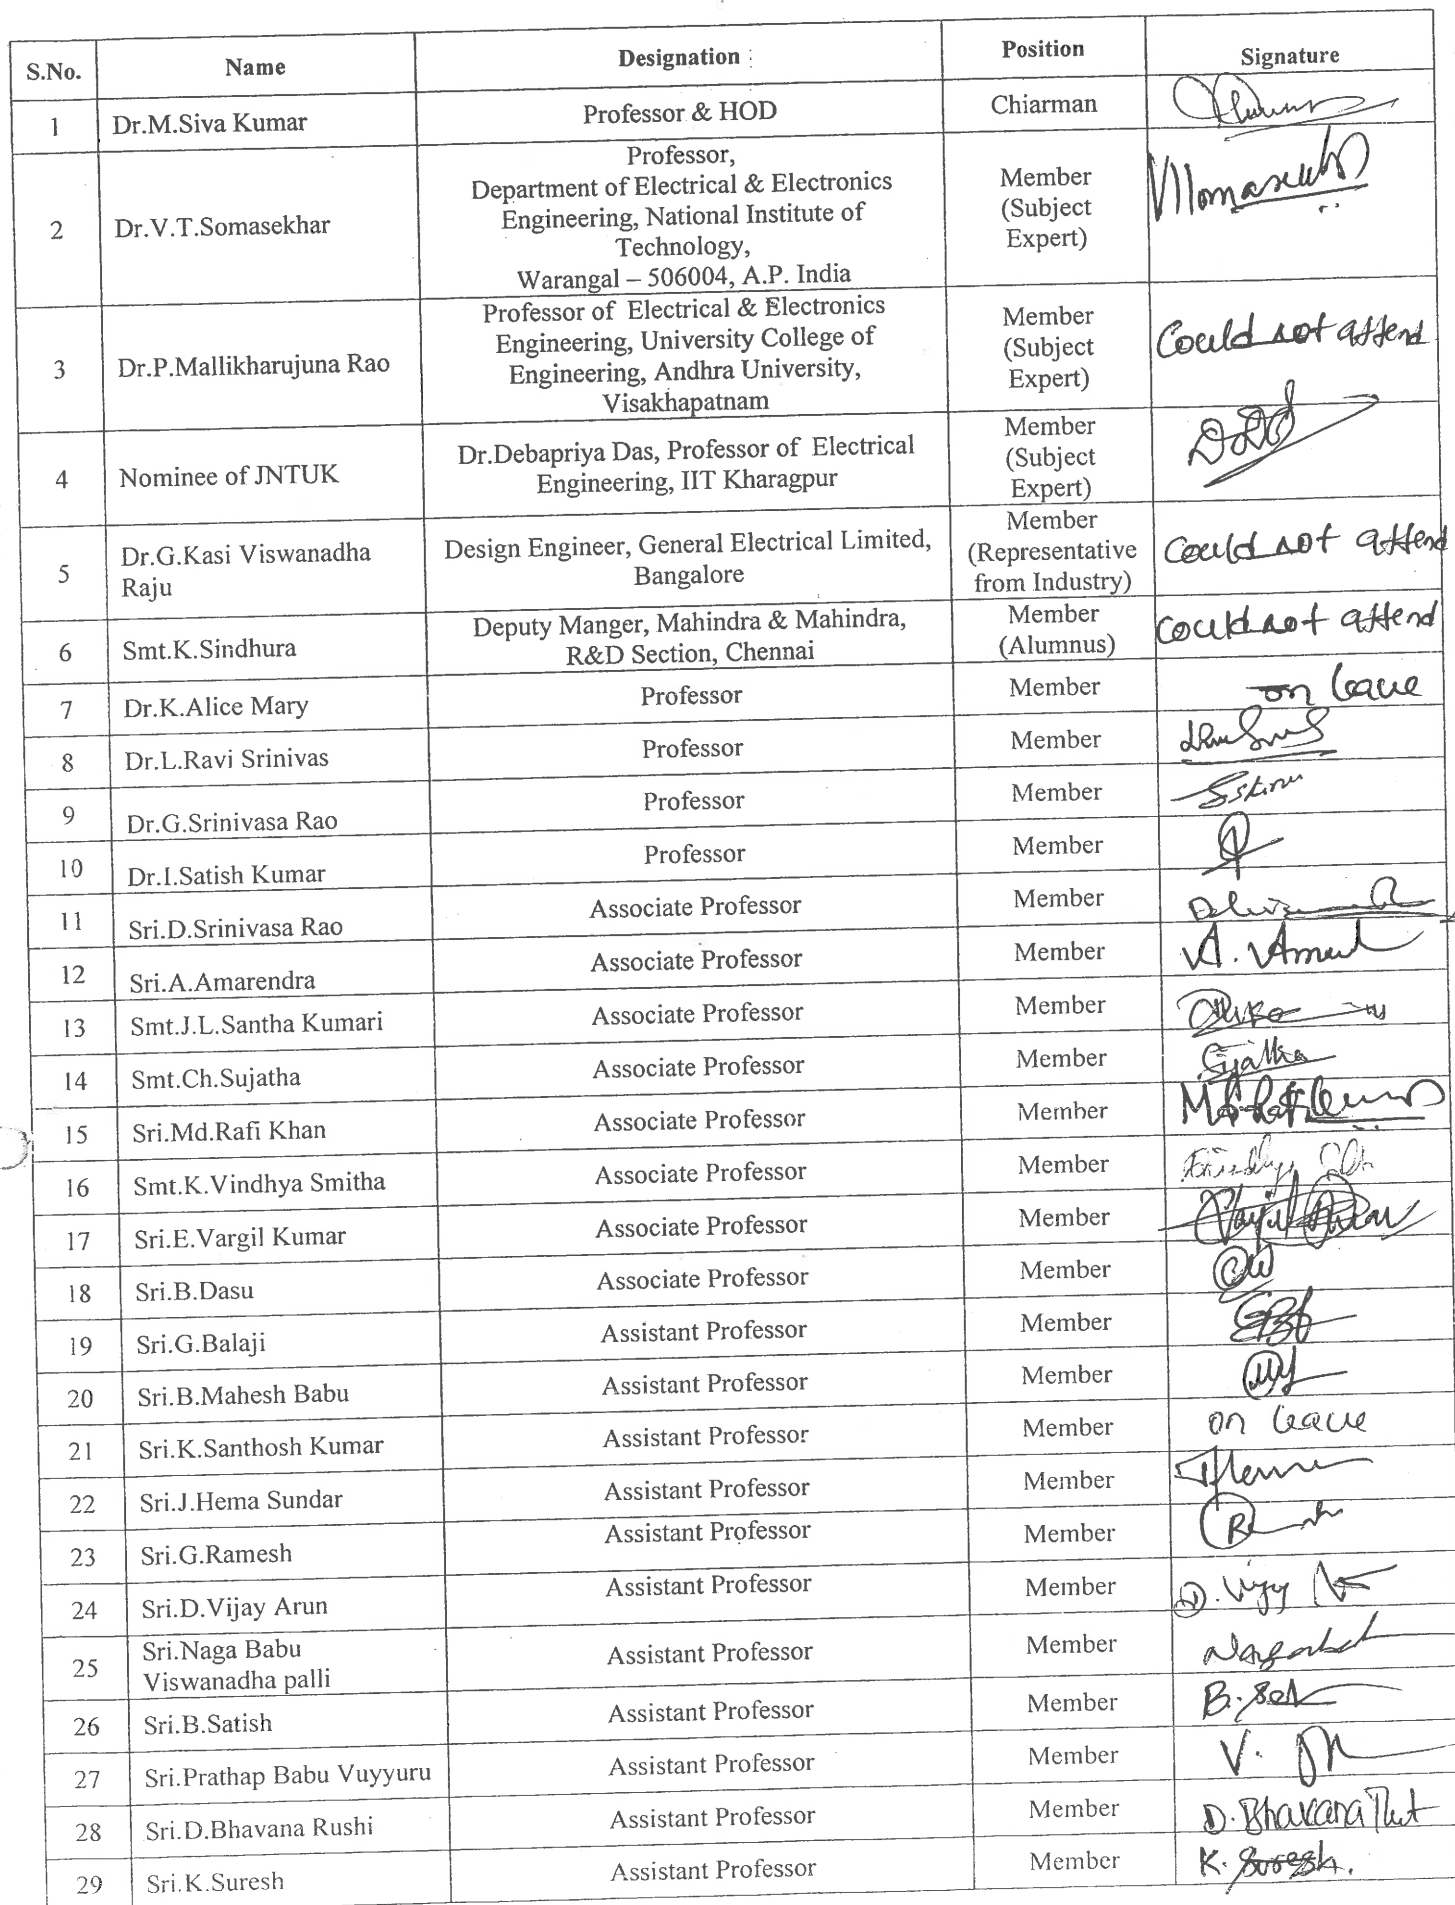 S.No. Name Designation : Position Signature
1 Dr.M.Siva Kumar Professor & HOD Chiarman
2 Dr.V.T.Somasekhar
Professor,
Department of Electrical & Electronics
Engineering, National Institute of
Technology,
Warangal – 506004, A.P. India
Member
(Subject
Expert)
3 Dr.P.Mallikharujuna Rao
Professor of Electrical & Electronics
Engineering, University College of
Engineering, Andhra University,
Visakhapatnam
Member
(Subject
Expert)
Could not attend
4 Nominee of JNTUK
Dr.Debapriya Das, Professor of Electrical
Engineering, IIT Kharagpur
Member
(Subject
Expert)
5 Dr.G.Kasi Viswanadha
Raju
Design Engineer, General Electrical Limited,
Bangalore
Member
(Representative
from Industry)
Could not attend
6 Smt.K.Sindhura
Deputy Manger, Mahindra & Mahindra,
R&D Section, Chennai
Member
(Alumnus)
Could not attend
7 Dr.K.Alice Mary Professor Member on leave
8 Dr.L.Ravi Srinivas Professor Member
9 Dr.G.Srinivasa Rao Professor Member
10 Dr.I.Satish Kumar Professor Member
11 Sri.D.Srinivasa Rao Associate Professor Member
12 Sri.A.Amarendra Associate Professor Member
13 Smt.J.L.Santha Kumari Associate Professor Member
14 Smt.Ch.Sujatha Associate Professor Member
15 Sri.Md.Rafi Khan Associate Professor Member
16 Smt.K.Vindhya Smitha Associate Professor Member
17 Sri.E.Vargil Kumar Associate Professor Member
18 Sri.B.Dasu Associate Professor Member
19 Sri.G.Balaji Assistant Professor Member
20 Sri.B.Mahesh Babu Assistant Professor Member
21 Sri.K.Santhosh Kumar Assistant Professor Member on leave
22 Sri.J.Hema Sundar Assistant Professor Member
23 Sri.G.Ramesh Assistant Professor Member
24 Sri.D.Vijay Arun Assistant Professor Member D. Vijay
25 Sri.Naga Babu
Viswanadha palli
Assistant Professor Member
26 Sri.B.Satish Assistant Professor Member
27 Sri.Prathap Babu Vuyyuru Assistant Professor Member
28 Sri.D.Bhavana Rushi Assistant Professor Member D. Bhavana
29 Sri.K.Suresh Assistant Professor Member K. Suresh.